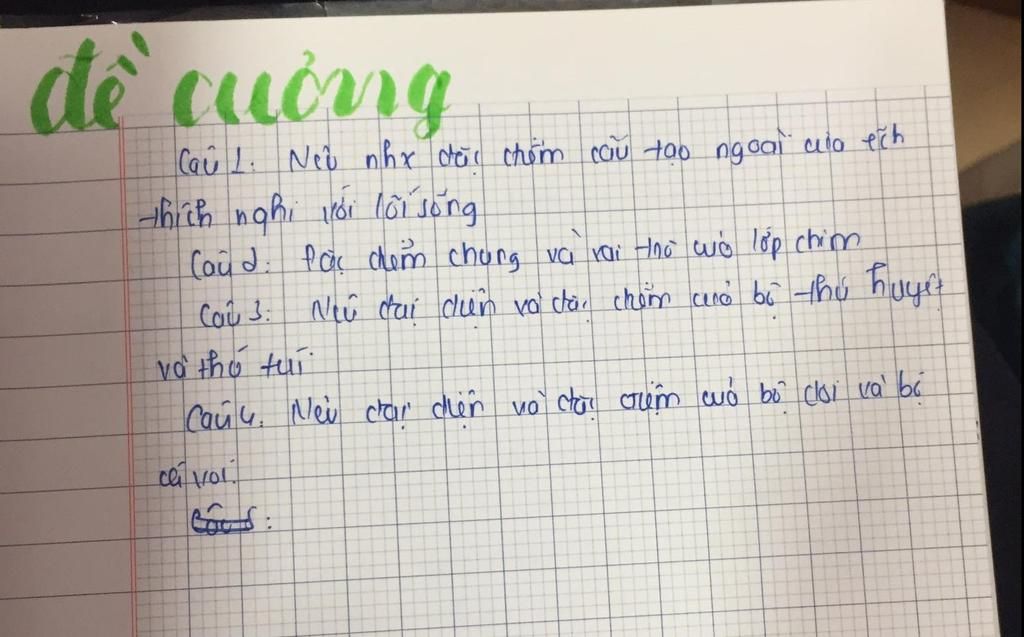 đề cương
Câu 1: Nêu nhx đặc điểm cấu tạo ngoài của ếch
thích nghi với lối sống
Câu 2: Đặc điểm chung và vai trò của lớp chim
Câu 3: Nêu đại diện và đặc điểm của bộ thú huyệt
và thú túi
Câu 4. Nêu đại diện và đặc điểm của bộ dơi và bộ
cá voi.